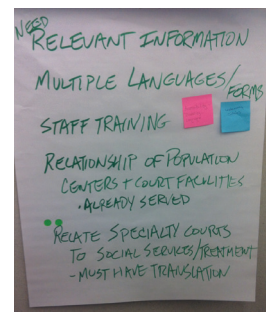 NEED
RELEVANT INFORMATION
MULTIPLE LANGUAGES/
FERMS
STAFF TRAINING
RELATIONSHIP OF POPULATION
CENTERS + COURT FACILITIES
• ALREADY SERVED
RELATE SPECIALTY COURTS
TO SOCIAL SERVICES/TREATMENT
- MUST HAVE TRANSLATION